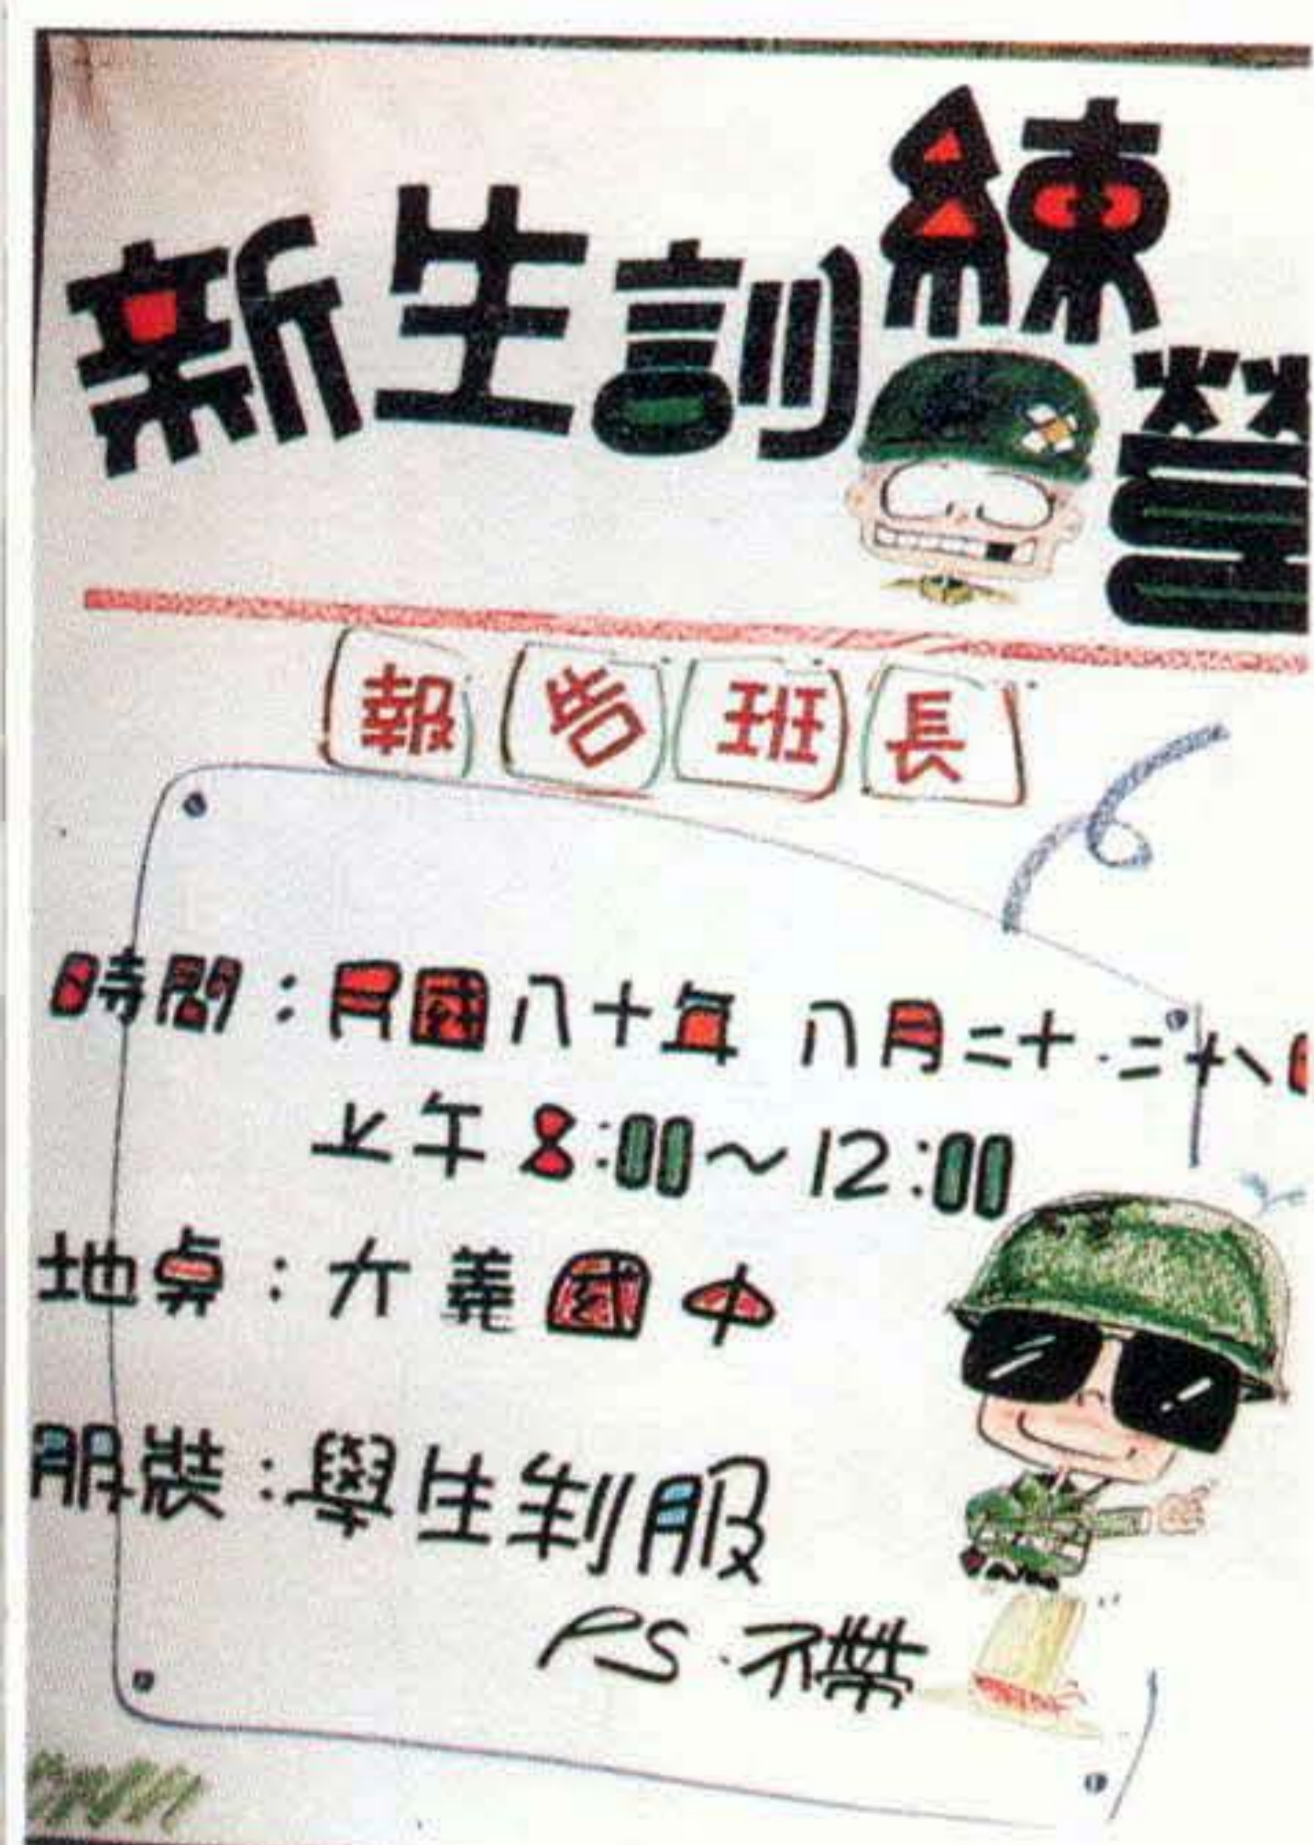 新生訓練營
報告班長
時間：民國八十年 八月二十.二十八日
上午8:00～12:00
地點：大義國中
服裝：學生制服
PS.不帶